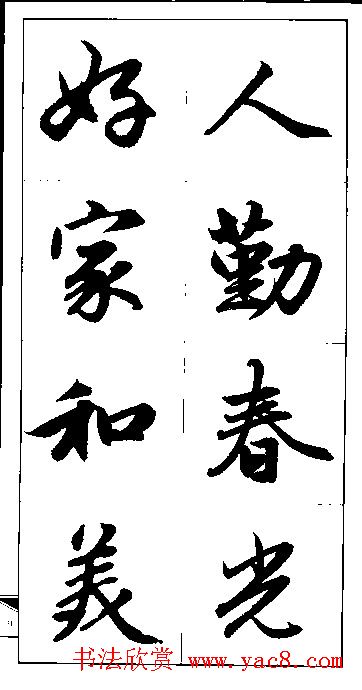 人勤春光
好家和美
书法欣赏www.yac8.com